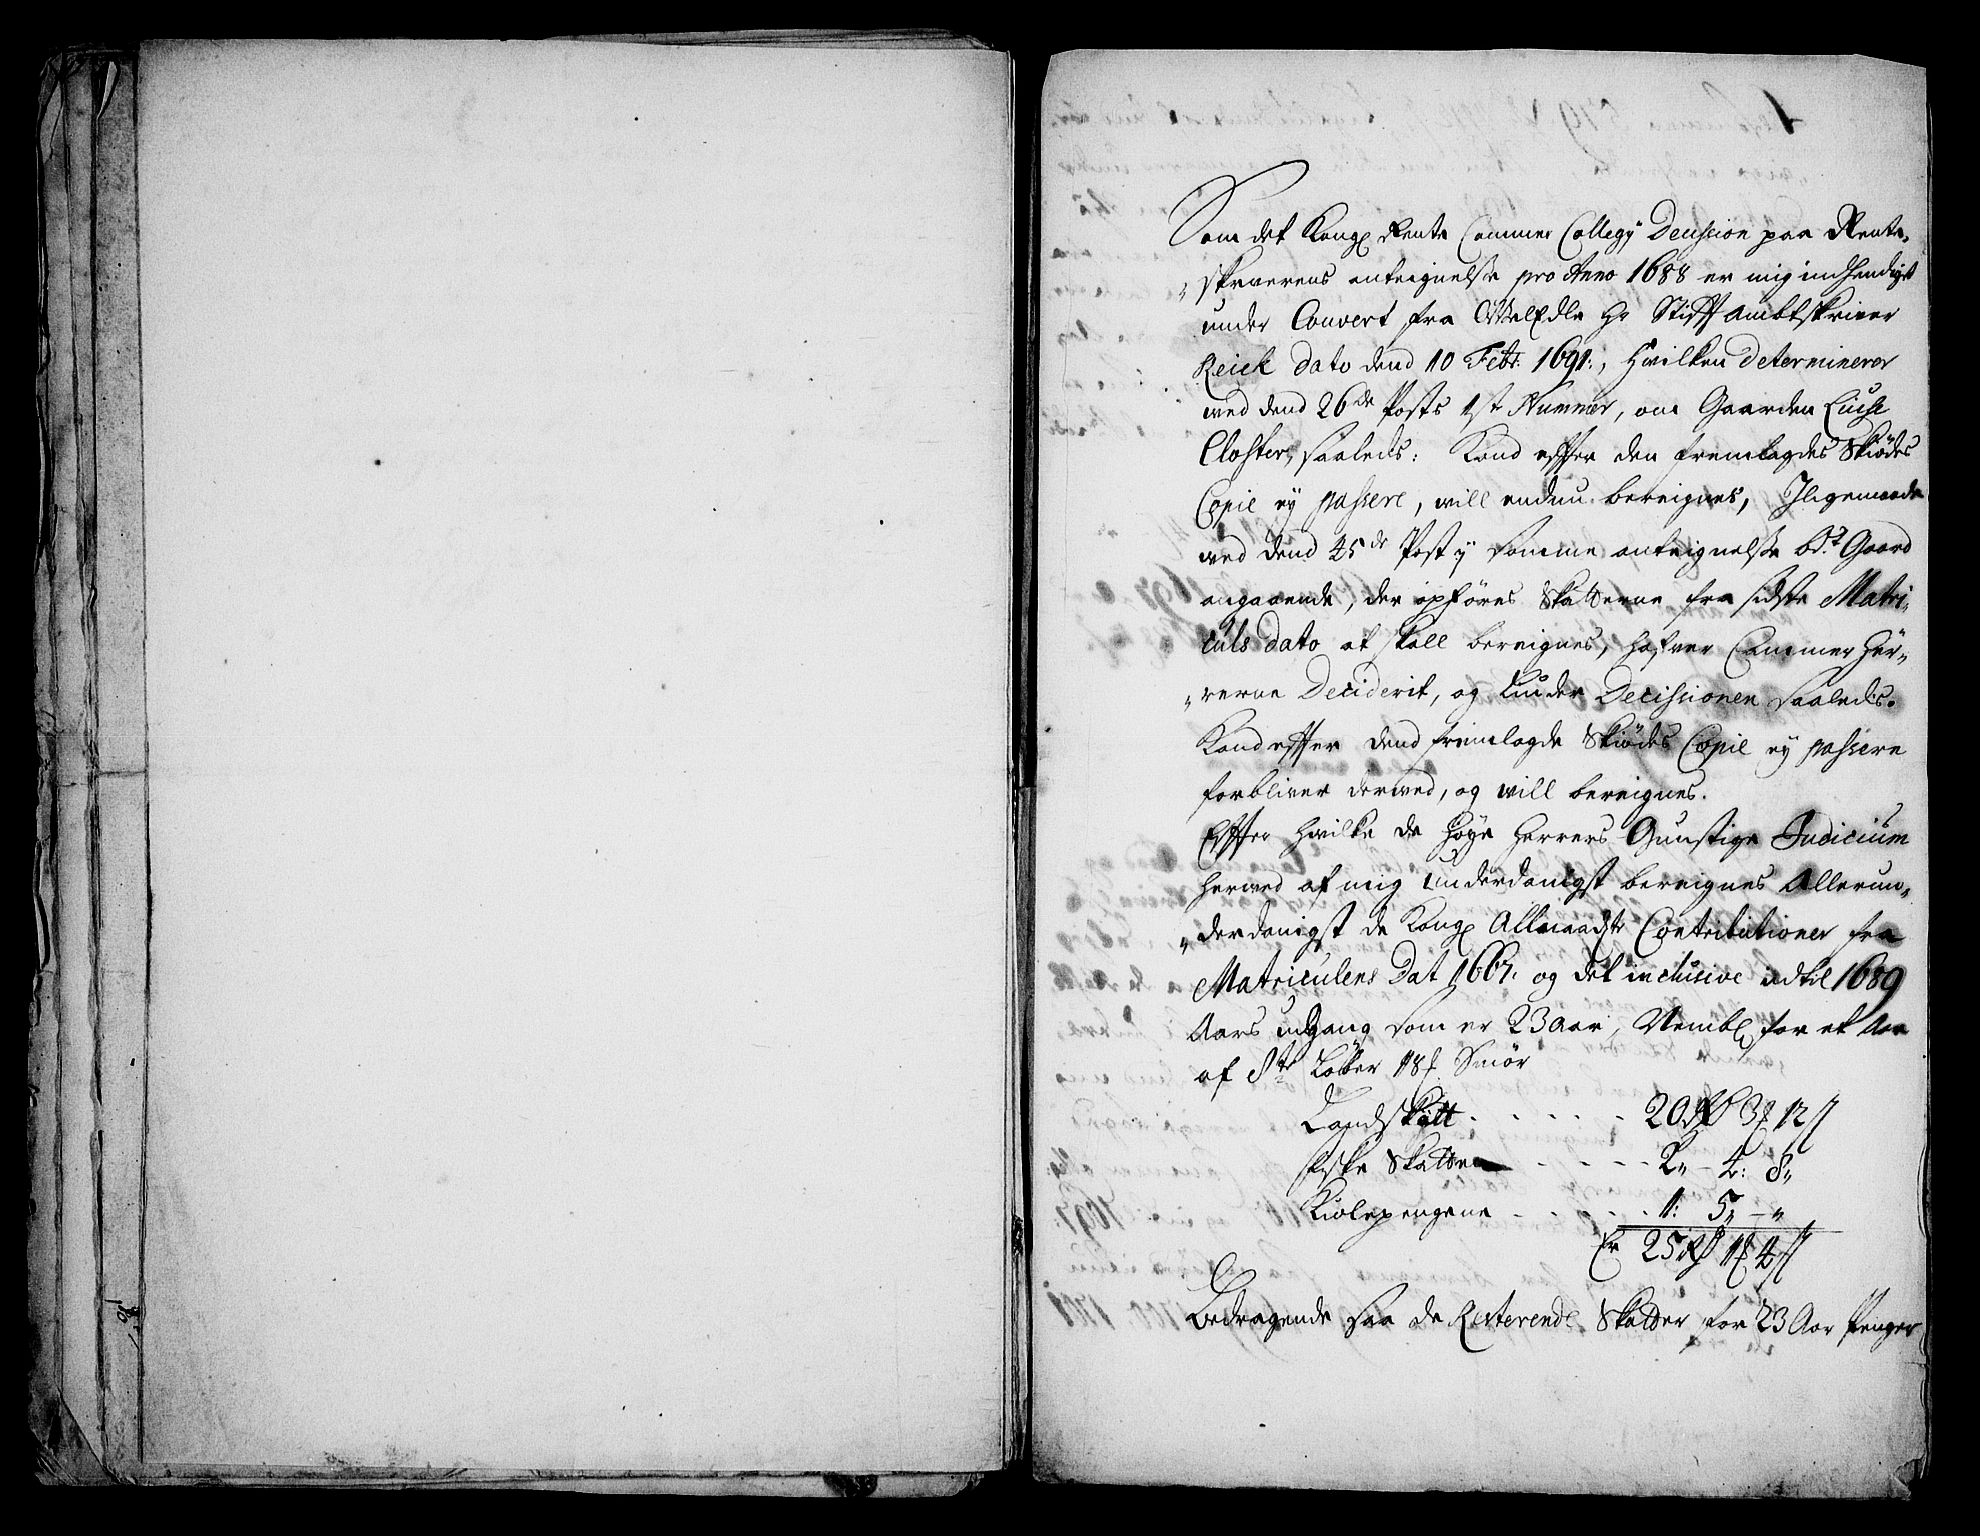 1
Som det Kongl Rente Cammer Collegy Decission paa Rente-
skriverens anteignelsse pro Anno 1688 er mig indhendiget
under Couvert fra WelEdle Hr Stifftambtskriver
Reick dato dend 10 Febr: 1691:, hvilken determinerer
ved dend 26de Posts 1st Nummer, om Gaarden Liuse
Closter, saaledis: Kand effter den fremlagdes Skiødes
Copie ey passere, will endnu bereignes, Jligemaade
ved dend 45de Post y samme anteignelsse bd.te Gaard
angaaende, der opføres Skatterne fra sidste Matri-
culs dato at skall bereignes, hafver Cammer Her-
rerne Deciderit, og liuder Decissionen saaledis.
Kand effter dend fremlagde Skiødes Copie ey passere
forbliver derved, og will bereignes.
Effter hvilke de høye Herrers Gunstige Judicium
herved af mig underdanigst bereignes Allerun-
derdanigst de Kongl Allernaadste Contributioner fra
Matriculens Dat 1667. og det inclusive indtil 1689
Aars udgang som er 23 aar, Nembl for et Aar
af 8te Løber 18 Smør
Landskatt - - - - 20 Rd 3 12
Skatten - - - - 2 - 4: 8
Kiolepengene - - - - 1: 5 - "
Er 25 Rd 1 4
Bedragende saa de Resterende Skatter for 23 Aar Penger